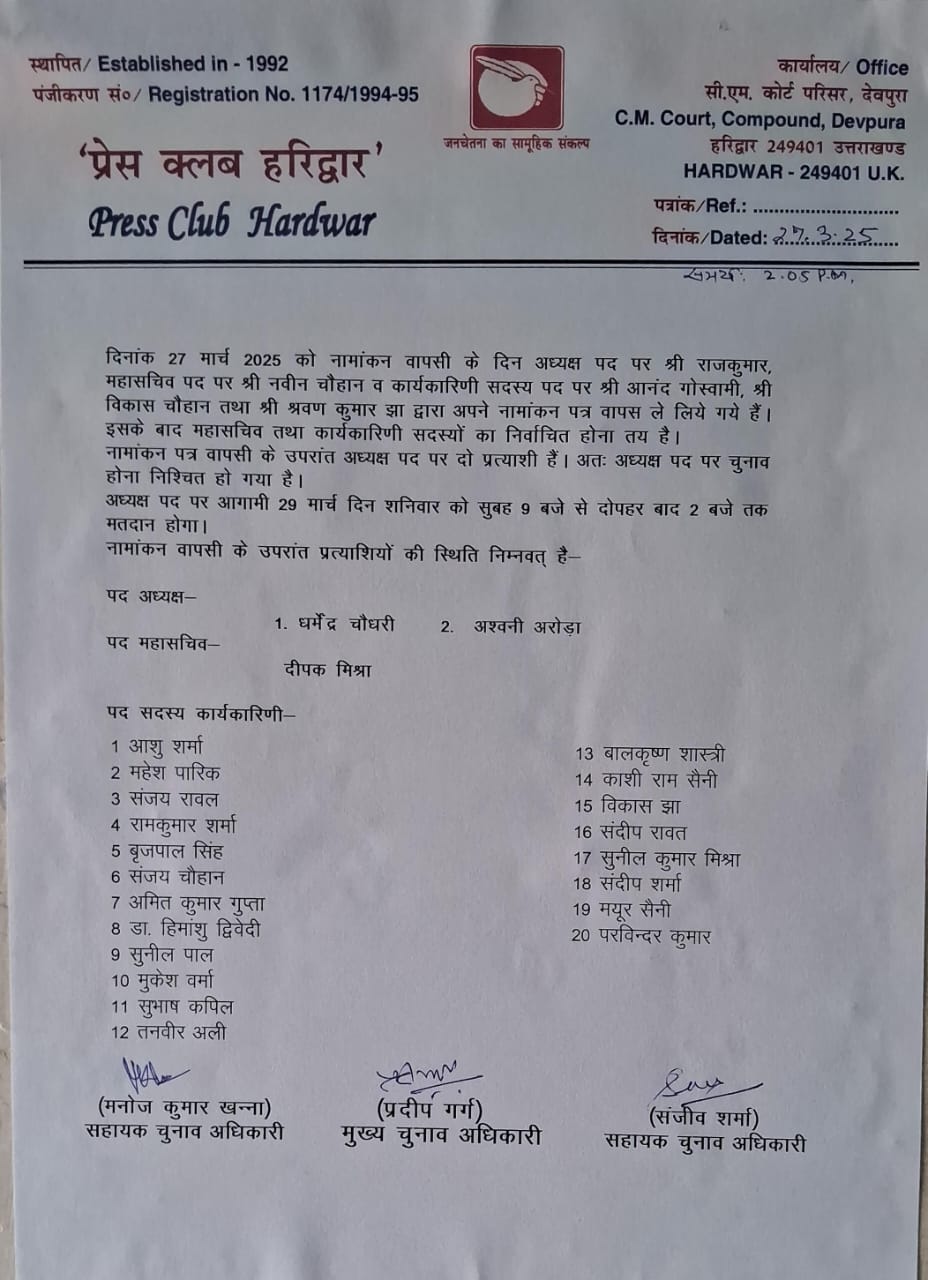 स्थापित/ Established in - 1992
पंजीकरण सं०/ Registration No. 1174/1994-95
'प्रेस क्लब हरिद्वार'
Press Club Hardwar
जनचेतना का सामूहिक संकल्प
कार्यालय/ Office
सी.एम. कोर्ट परिसर, देवपुरा
C.M. Court, Compound, Devpura
हरिद्वार 249401 उत्तराखण्ड
HARDWAR - 249401 U.K.
पत्रांक/Ref.: ............................
दिनांक/Dated: 27.3.25
समय: 2.05 P.M.
दिनांक 27 मार्च 2025 को नामांकन वापसी के दिन अध्यक्ष पद पर श्री राजकुमार,
महासचिव पद पर श्री नवीन चौहान व कार्यकारिणी सदस्य पद पर श्री आनंद गोस्वामी, श्री
विकास चौहान तथा श्री श्रवण कुमार झा द्वारा अपने नामांकन पत्र वापस ले लिये गये हैं।
इसके बाद महासचिव तथा कार्यकारिणी सदस्यों का निर्वाचित होना तय है।
नामांकन पत्र वापसी के उपरांत अध्यक्ष पद पर दो प्रत्याशी हैं। अतः अध्यक्ष पद पर चुनाव
होना निश्चित हो गया है।
अध्यक्ष पद पर आगामी 29 मार्च दिन शनिवार को सुबह 9 बजे से दोपहर बाद 2 बजे तक
मतदान होगा।
नामांकन वापसी के उपरांत प्रत्याशियों की स्थिति निम्नवत् है–
पद अध्यक्ष–
1. धर्मेंद्र चौधरी 2. अश्वनी अरोड़ा
पद महासचिव–
दीपक मिश्रा
पद सदस्य कार्यकारिणी–
1 आशु शर्मा
2 महेश पारिक
3 संजय रावल
4 रामकुमार शर्मा
5 बृजपाल सिंह
6 संजय चौहान
7 अमित कुमार गुप्ता
8 डा. हिमांशु द्विवेदी
9 सुनील पाल
10 मुकेश वर्मा
11 सुभाष कपिल
12 तनवीर अली
13 बालकृष्ण शास्त्री
14 काशी राम सैनी
15 विकास झा
16 संदीप रावत
17 सुनील कुमार मिश्रा
18 संदीप शर्मा
19 मयूर सैनी
20 परविन्दर कुमार
(मनोज कुमार खन्ना)
सहायक चुनाव अधिकारी
(प्रदीप गर्ग)
मुख्य चुनाव अधिकारी
(संजीव शर्मा)
सहायक चुनाव अधिकारी